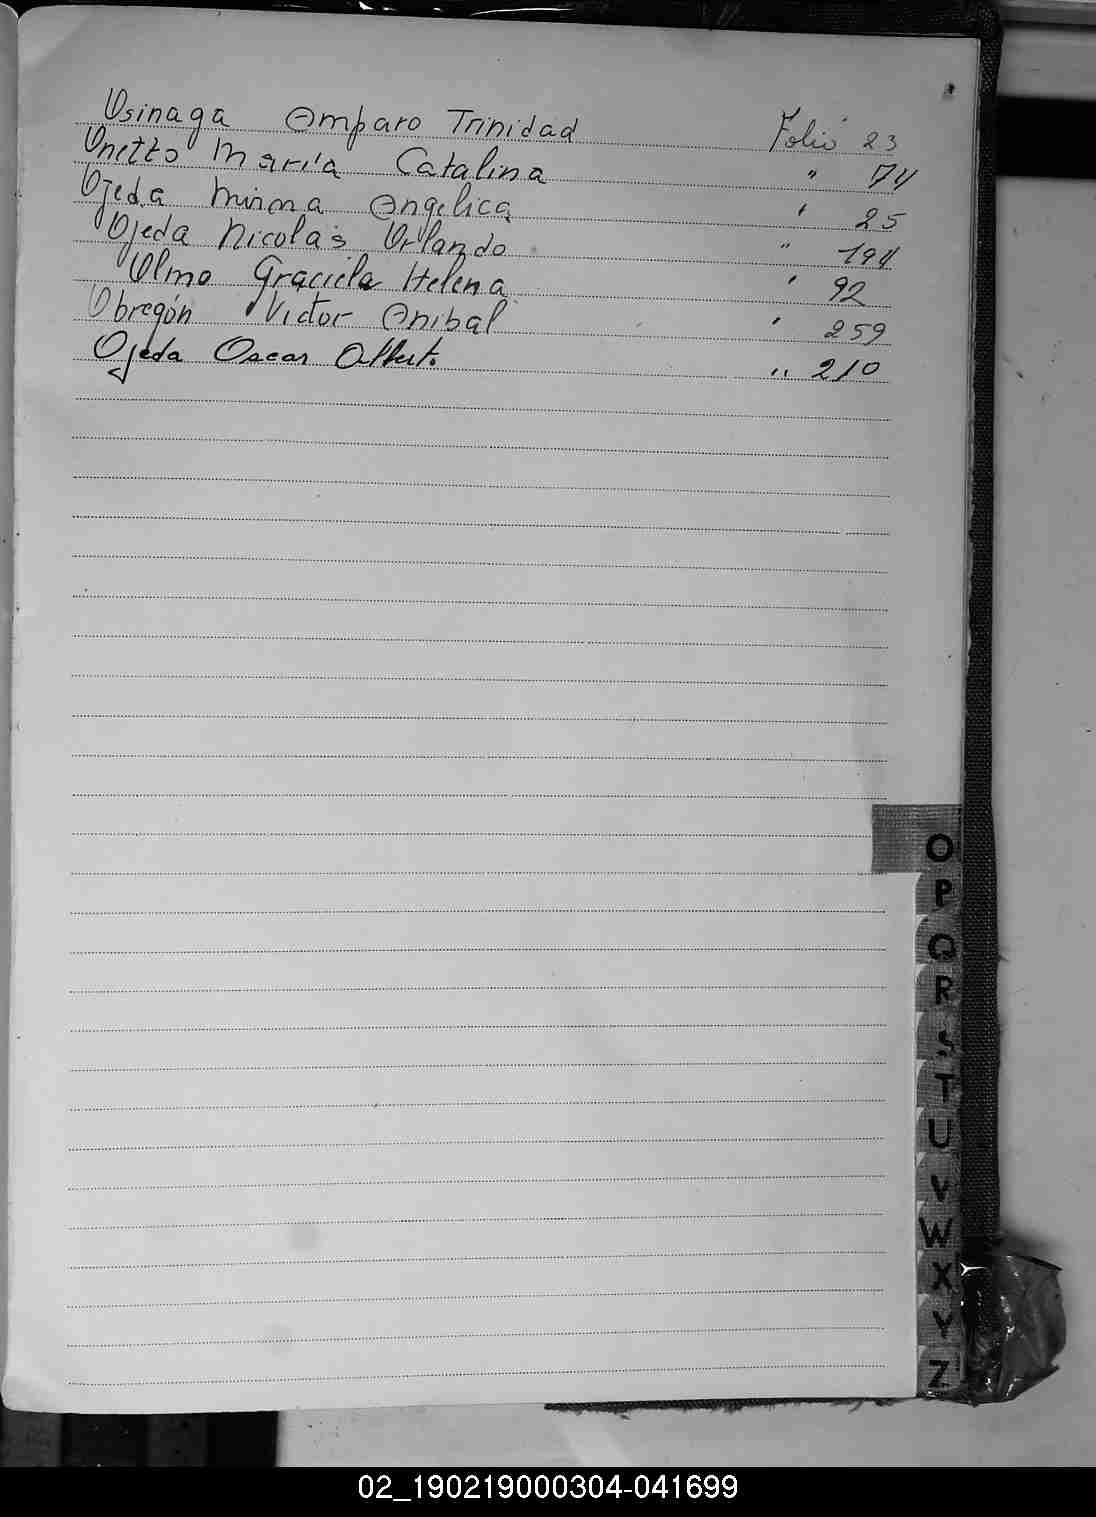 Osinaga Amparo Trinidad Folio 23
Onetto María Catalina " 74
Ojeda Mirna Angelica " 25
Ojeda Nicolas Orlando " 194
Olmo Graciela Helena " 92
Obregón Victor Anibal " 259
Ojeda Oscar Alberto " 210
O
P
Q
R
S
T
U
V
W
X
Y
Z
02_190219000304-041699